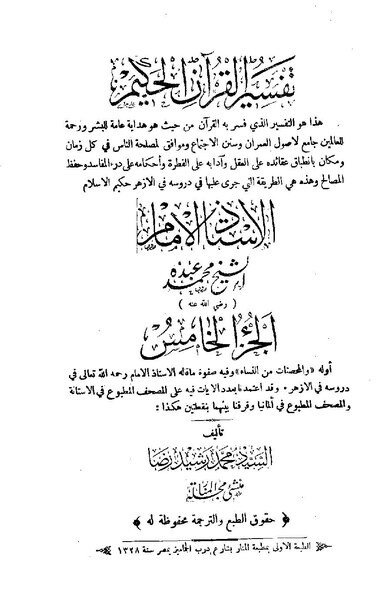 تفسير القرآن الحكيم
هذا هو التفسير الذي فسر به القرآن من حيث هو هداية عامة للبشر ورحمة
للعالمين جامع لاصول العمران وسنن الاجتماع وموافق لمصلحة الناس في كل زمان
ومكان بانطباق عقائده على العقل وآدابه على الفطرة وأحكامه على درء المفاسد وحفظ
المصالح وهذه هي الطريقة التي جرى عليها في دروسه في الازهر حكيم الاسلام
الاستاذ الامام
الشيخ محمد عبده
( رضي الله عنه )
الجزء الخامس
أوله «والمحصنات من النساء» وفيه صفوة ماقاله الاستاذ الامام رحمه الله تعالى في
دروسه في الازهر. وقد اعتمدنا بعدد الآيات فيه على المصحف المطبوع في الاستانة
والمصحف المطبوع في ألمانيا وفرقنا بينهما بنقطتين هكذا :
تأليف
السيد محمد رشيد رضا
منشئ مجلة المنار
﴿ حقوق الطبع والترجمة محفوظة له ﴾
الطبعة الاولى بمطبعة المنار بشارع درب الجماميز بمصر سنة ١٣٢٨